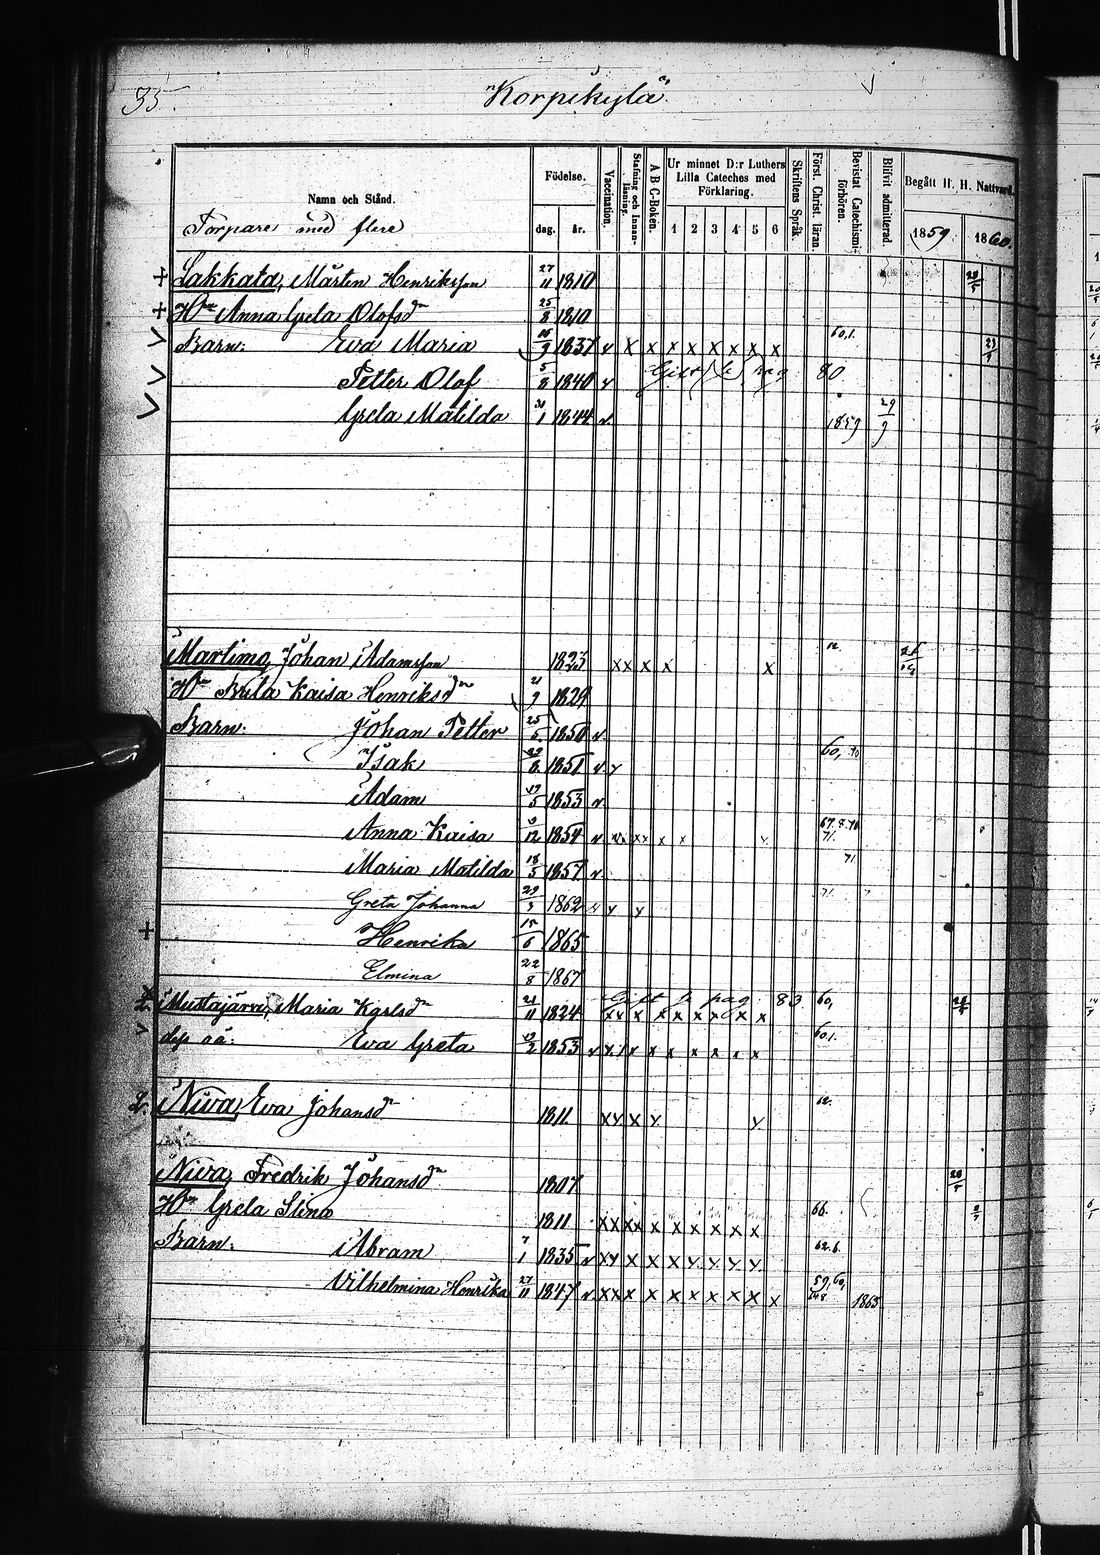 35.
Korpikylä
Namn och Stånd.
Torpare med flere
Födelse.
dag. år.
Vaccination.
Stafning och Innanläsning.
A B C-Boken.
Ur minnet D:r Luthers Lilla Cateches med Förklaring.
1 2 3 4 5 6
Skriftens Språk.
Först. Christ. läran.
Bevistat Catechismiförhören.
Blifvit admitterad.
Begått H. H. Nattvard.
1859 1860.
+ Lakkata, Mårten Henriksson 27/11 1810 28/5
+ Hn Anna Greta Olofsdr 25/8 1810
Barn: Eva Maria 9 1837 v x x x x x x x x 60,1.
Petter Olof 5/8 1840 v Gift se pag 80
Greta Matilda 31/1 1844 v. 1859 29/9
Martimo, Johan Adamsson 1823 xx x x x 12.
Hn Brita Kaisa Henriksdr 21/9 1829
Barn: Johan Petter 25/5 1850 v.
Isak 8. 1851 v v 60, 70
Adam 19/5 1853 v.
Anna Kaisa 12 1854 v x x 71.
Maria Matilda 18/5 1857 v. 71
Greta Johanna 29/3 1862 v v v 71.
+ Henrika 15/6 1865
Elmina 22/8 1867
Mustajärvi, Maria Karlsdr 21/11 1824 Gift se pag 83 60,
xx x x x x x x x
dess oä: Eva Greta 2 1853 v 60,1.
Niva, Eva Johansdr 1811. xx x y y. 12.
Niva, Fredrik Johansd 1807 28/5
Hn Greta Stina 1811 xx xx x x x x x x 66.
Barn: Abram 7/1 1835 v xy x x x y y y y. 62.6.
Vilhelmina Henrika 27/11 1847 v xx x x x x x x x x 59, 60, 1865